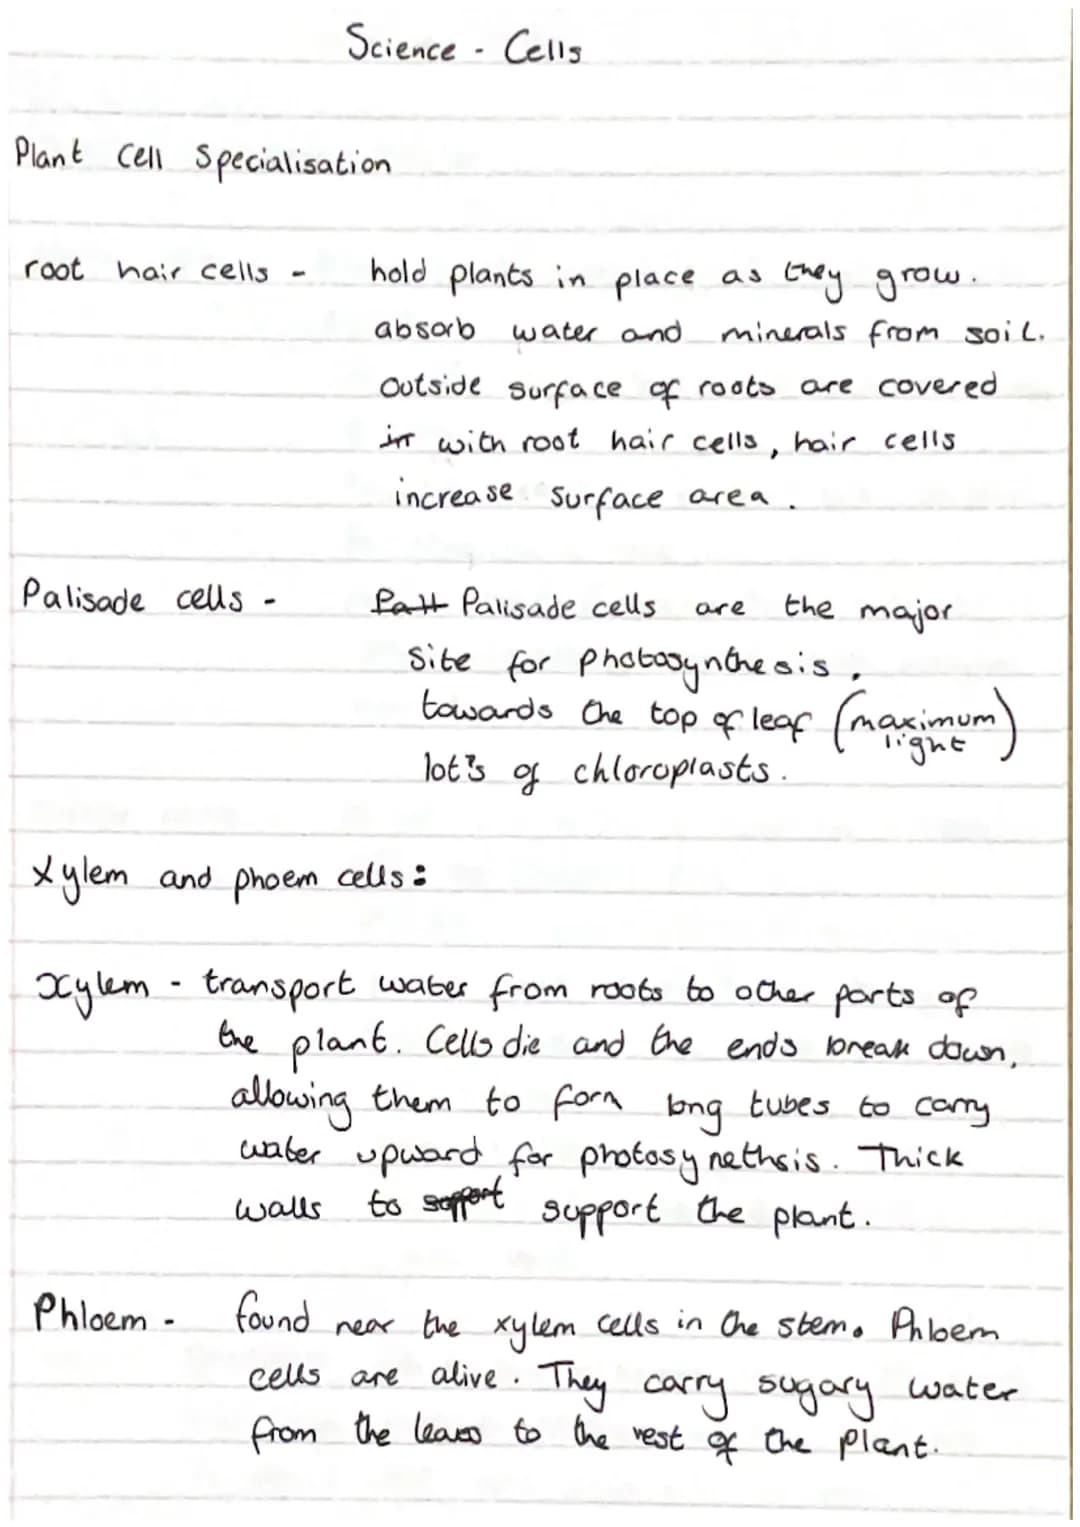 Science - Cells
Plant Cell Specialisation
root hair cells - hold plants in place as they grow.
absorb water and minerals from soil.
Outside surface of roots are covered
in with root hair cells, hair cells
increase surface area.
Palisade cells - Pall Palisade cells are the major
Site for Photosynthesis,
towards the top of leaf (maximum light)
lot's of chloroplasts.
Xylem and phoem cells:
Xylem - transport water from roots to other parts of
the plant. Cells die and the ends break down,
allowing them to form long tubes to carry
water upward for photosynethsis. Thick
walls to support support the plant.
Phloem - found near the xylem cells in the stem. Phloem
cells are alive. They carry sugary water
from the leaves to the rest of the plant.